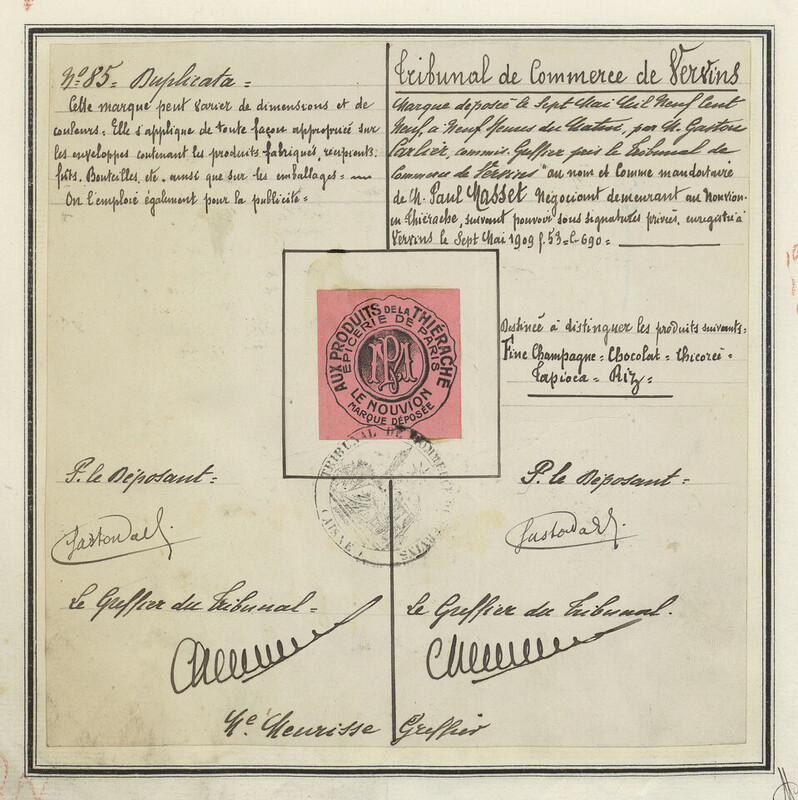 No. 85 = Duplicata =
Cette marque peut varier de dimensions et de
couleurs = Elle s'applique de toute façon appropriée sur
les enveloppes contenant les produits fabriqués, récipients,
fûts, Bouteilles, etc. ainsi que sur les emballages =
On l'emploie également pour la publicité =
Tribunal de Commerce de Vervins
Marque déposée le Sept Mai Mil Neuf Cent
Neuf à Neuf Heures du Matin, par M. Gaston
Carlier, commis-Greffier près le Tribunal de
Commerce de Vervins "au nom et Comme mandataire
de M. Paul Masset Négociant demeurant au Nouvion-
en-Thiérache, suivant pouvoir sous signatures privées, enregistré à
Vervins le Sept Mai 1909 f. 53 = C. 690 =
AUX PRODUITS DE LA THIÉRACHE
EPICERIE DE PARIS
PM
LE NOUVION
MARQUE DÉPOSÉE
Destinée à distinguer les produits suivants =
Fine Champagne = Chocolat = Chicorée =
Tapioca = Riz =
TRIBUNAL DE COMMERCE DE
VERVINS (AISNE)
P. le Déposant =
P. le Déposant =
Le Greffier du Tribunal =
Le Greffier du Tribunal.
Me Meurisse Greffier